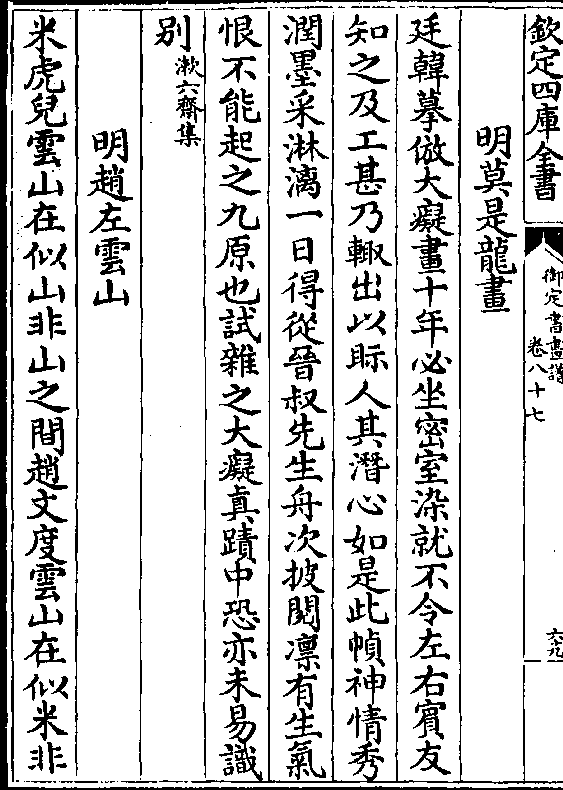 欽定四庫全書
御定書畫譜
卷八十七
六九
明莫是龍畫
廷韓摹倣大癡畫十年必坐密室染就不令左右賓友
知之及工甚乃輙出以眎人其潛心如是此幀神情秀
潤墨采淋漓一日得從晉叔先生舟次披閱凛有生氣
恨不能起之九原也試雜之大癡真蹟中恐亦未易識
别漱六齋集
明趙左雲山
米虎兒雲山在似山非山之間趙文度雲山在似米非